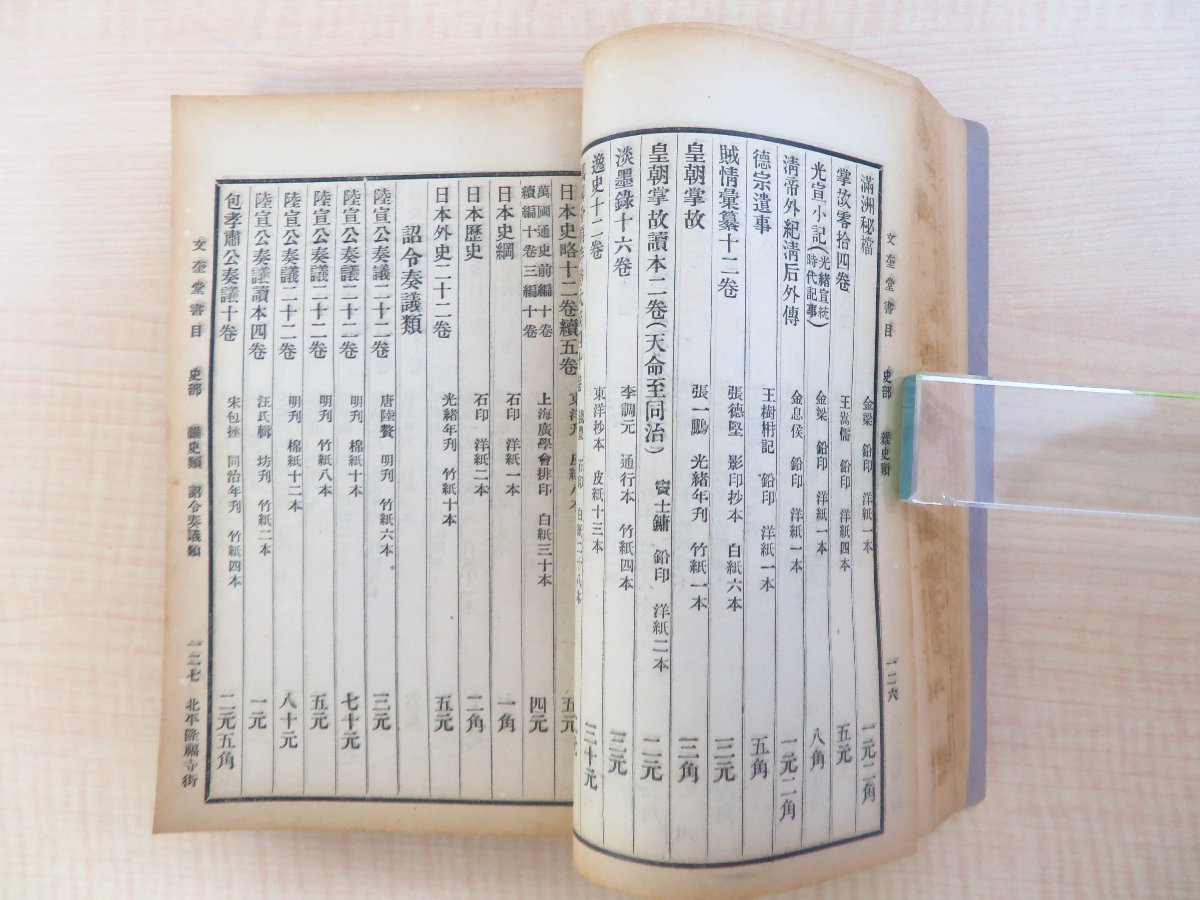 文奎堂書目 史部 雜史類 一二六
滿洲秘檔 金梁 鉛印 洋紙一本 一元二角
掌故零拾四卷 王嵩儒 鉛印 洋紙四本 五元
光宣小記(光緒宣統時代記事) 金梁 鉛印 洋紙一本 八角
清帝外紀清后外傳 金息侯 鉛印 洋紙一本 一元二角
德宗遺事 王樹枏記 鉛印 洋紙一本 五角
賊情彙纂十二卷 張德堅 影印抄本 白紙六本 三元
皇朝掌故 張一鵬 光緒年刊 竹紙一本 三角
皇朝掌故讀本二卷(天命至同治) 竇士鏞 鉛印 洋紙二本 二元
淡墨錄十六卷 李調元 通行本 竹紙四本 三元
逸史十二卷 東洋抄本 皮紙十三本 三十元
日本史略十二卷續五卷 五元
萬國通史前編十卷續編十卷三編十卷 上海廣學會排印 白紙三十本 四元
日本史綱 石印 洋紙一本 一角
日本歷史 石印 洋紙二本 二角
日本外史二十二卷 光緒年刊 竹紙十本 五元
詔令奏議類
陸宣公奏議二十二卷 唐陸贄 明刊 竹紙六本 三元
陸宣公奏議二十二卷 明刊 棉紙十本 七十元
陸宣公奏議二十二卷 明刊 竹紙八本 五元
陸宣公奏議二十二卷 明刊 棉紙十二本 八十元
陸宣公奏議讀本四卷 汪氏輯 坊刊 竹紙二本 一元
包孝肅公奏議十卷 宋包拯 同治年刊 竹紙四本 二元五角
文奎堂書目 史部 雜史類 詔令奏議類 一二七 北平隆福寺街